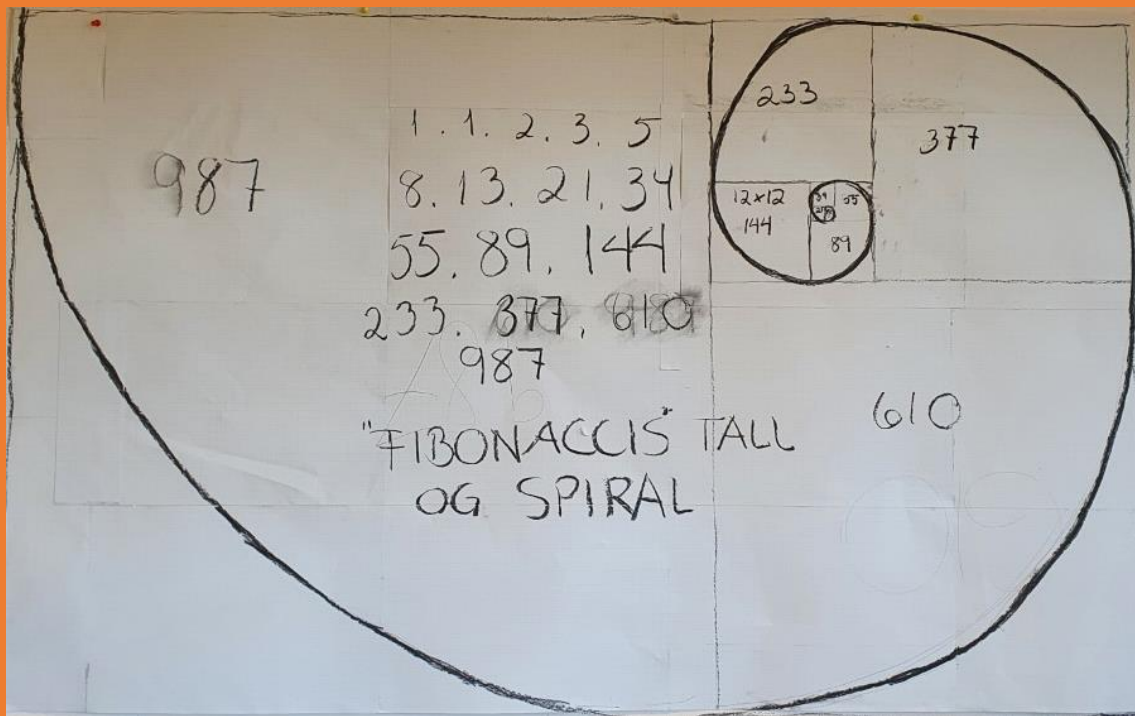 987
1. 1. 2. 3. 5
8. 13. 21. 34
55. 89. 144
233. 377. 610
987
"FIBONACCIS" TALL
OG SPIRAL
233
377
12x12
144
55
89
610